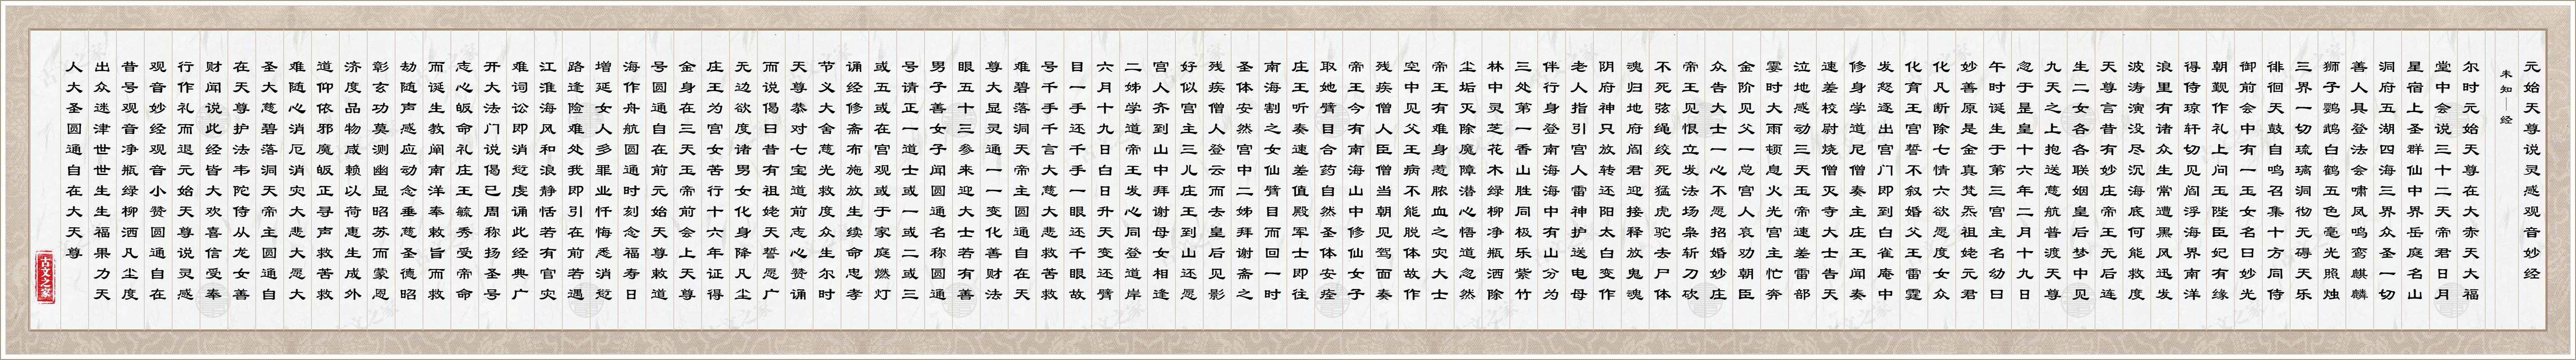 元始天尊说灵感观音妙经
未知——经
尔时元始天尊在大赤天大福
堂中会说三十二天帝君日月
星宿上圣群仙中界岳庭名山
洞府五湖四海三界众圣一切
善人具登法会啸凤鸣鸾麒麟
狮子鹦鹉白鹤五色毫光照烛
三界一切琉璃洞彻无碍天乐
徘徊天鼓自鸣召集十方同侍
御前会中有一玉女名曰妙光
朝觐作礼上问玉陛臣妃有缘
得侍琼轩切见阎浮海界南洋
浪里有诸众生常遭黑风迅发
波涛演没尽沉海底何能救度
天尊言昔有妙庄帝王无后连
生二女各各联姻皇后梦中见
九天之上抱送慈航普渡天尊
忽于显皇十六年二月十九日
午时诞生于第三宫主名幼曰
妙善原是金真梵炁祖姥元君
化凡断除七情六欲忍度女众
化育王宫誓不叙婚父王雷霆
发怒逐出宫门即到白雀庵中
修身学道尼僧奏主庄王闻奏
速差校尉烧僧灭寺大士告天
泣地感动三天玉帝速差雷部
霎时大雨顿息火光宫主忙奔
金阶见父一总宫人哀劝朝臣
众告大士一心不忍招婚妙庄
帝王见恨立发法场枭斩刀砍
不死弦绳绞死猛虎驼去尸体
魂归地府阎君迎接释放鬼魂
阴府神只放转还阳太白变作
老人指引宫人雷神护送电母
伴行身登南海海中有山分为
三处第一香山胜同极乐紫竹
林中灵芝花木绿柳净瓶洒除
尘垢灭除魔障潜心悟道忽然
帝王有难身惹脓血之灾大士
空中见父王病不能脱体故作
残疾僧人臣僧当朝见驾面奏
帝王今有南海山中修仙女子
取她臂目合药自然圣体安痊
庄王听奏速差值殿军士即往
南海割之女仙臂目而回一时
圣体安然宫中二姊拜谢斋之
残疾僧人登云而去皇后见影
好似宫主三儿庄王到山还愿
宫人齐到山中拜谢母女相逢
二姊学道帝王发心同登道岸
六月十九日白日升天变还臂
目一手还千手一眼还千眼故
号千手千言大慈大悲救苦救
难碧落洞天帝主圆通自在天
尊大显灵通一一变化善财法
眼五十三参来迎大士若有善
男子善女子闻圆通名称圆通
号请正一道士或一或二或三
或五或在宫观或于家庭燃灯
诵经修斋布施放生续命忠孝
节义大舍慈光救度众生尔时
天尊恭对七宝道前志心赞诵
而说偈曰昔有祖姥天誓愿广
无边欲度诸男女化身降凡尘
庄王为宫女苦行十六年证得
金身在三天玉帝前会上天尊
号圆通自在前元始天尊敕道
海作舟航圆通时刻念福寿日
增延女人多罪业忏悔悉消愆
路逢险难处我即引在前若遇
江淮海风和浪静恬若有官灾
难词讼即消愆虔诵此经典广
开大法门说偈已周称扬圣号
志心皈命礼庄王毓秀受帝命
而诞生教阐南洋奉敕旨而救
劫随声感应动念垂慈圣德昭
彰玄功莫测幽显昭苏而蒙恩
济度品物咸赖以荷惠生成外
道仰依邪魔皈正寻声救苦救
难随心消厄消灾大悲大愿大
圣大慈碧落洞天帝主圆通自
在天尊护法韦陀侍从龙女善
财闻说此经皆大欢喜信受奉
行作礼而退元始天尊说灵感
观音妙经观音小赞圆通自在
昔号观音净瓶绿柳洒凡尘度
出众迷津世世生生福果力天
人大圣圆通自在大天尊
古文之家